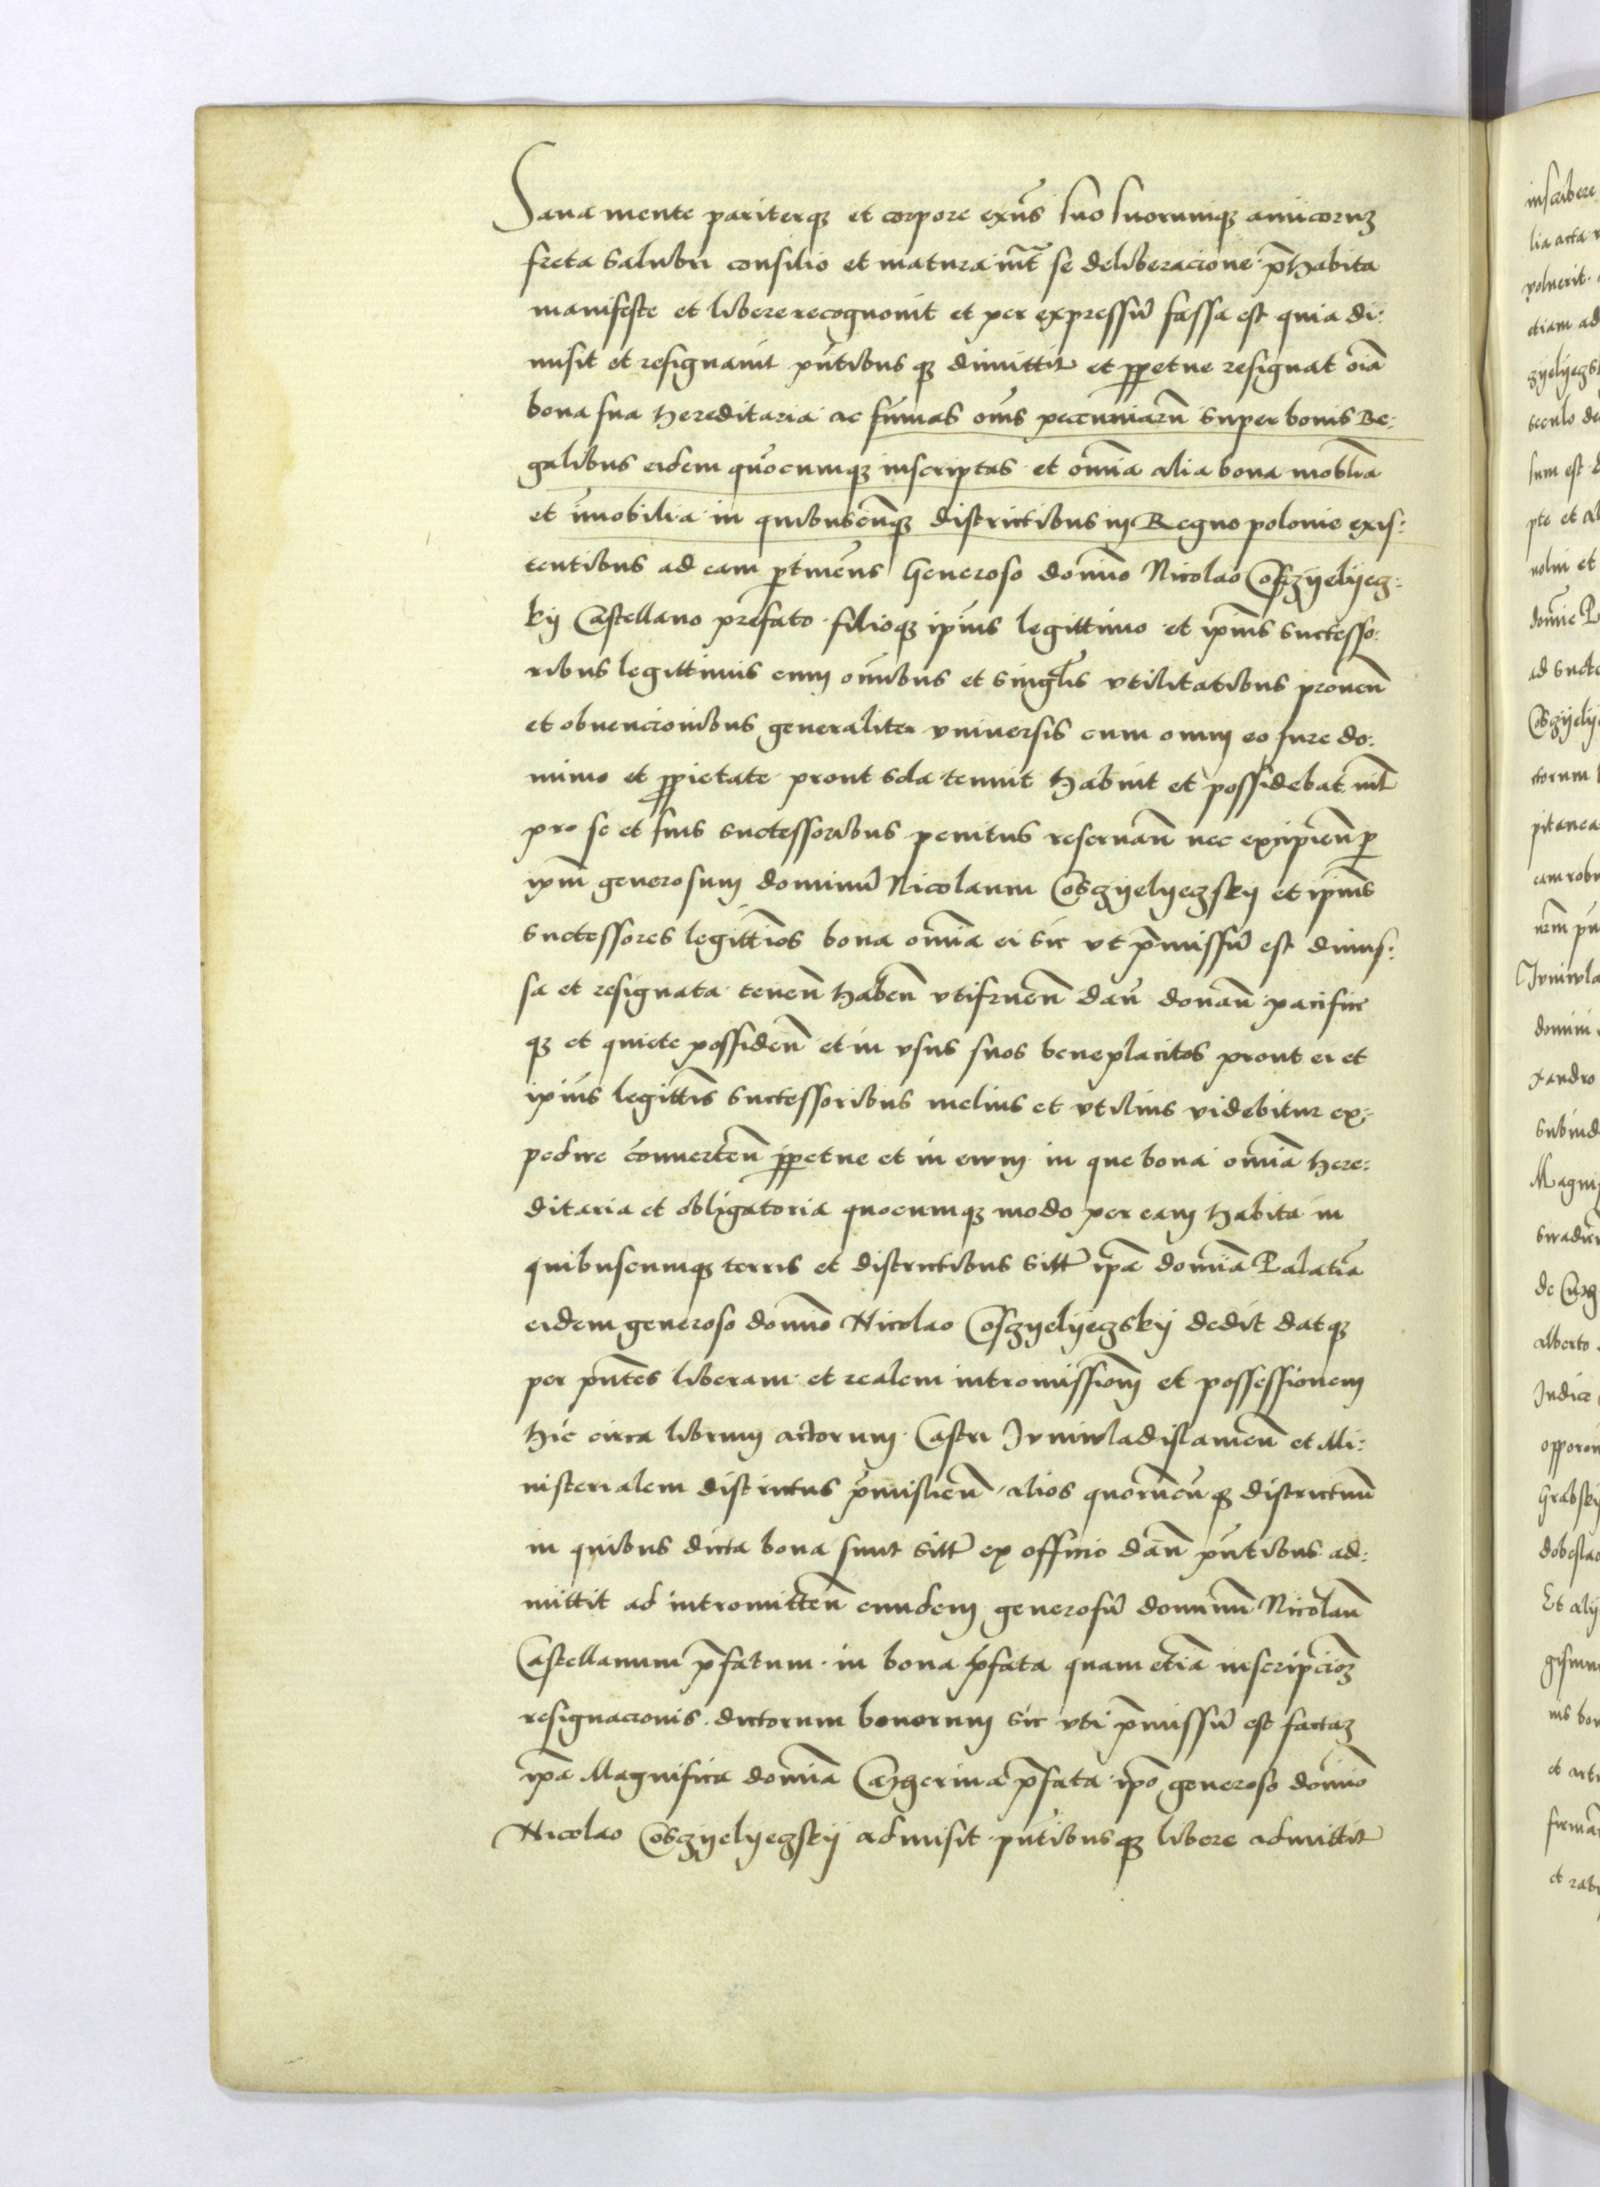 Sana mente pariterqꝫ et corpore exñs suo suorumqꝫ amicoruꝫ
freta salubri consilio et matura int̃ se deliberacione p̃habita
manifeste et libere recognouit et per expressũ fassa est quia di:
misit et resignauit pñtibus qꝫ dimittit et ꝑpetue resignat oĩa
bona sua hereditaria ac sũmas om̃s pecuniarũ super bonis Re:
galibus eidem quocumqꝫ inscriptas et om̃ia alia bona mobilia
et ĩmobilia in quibuscũqꝫ districtibus in Regno polonie exis:
tentibus ad eam ꝑtineñs Generoso domĩo Nicolao Cosczyelyecz:
kÿ Castellano prefato filioqꝫ ip̃ius legittimo et ip̃ius successo:
ribus legittimis cum om̃ibus et singl̃is vtilitatibus proueñ
et obuencionibus generaliter vniuersis cum omni eo iure do:
minio et ꝓprietate prout sola tenuit habuit et possidebat nil̃
pro se et suis successoribus penitus reseruañ nec excipieñ per
ip̃m generosum dominũ Nicolaum Cosczyelyeczskÿ et ip̃ius
successores legittĩos bona om̃ia ei sic vt p̃missũ est dimis:
sa et resignata teneñ habeñ vtifrueñ dañ donañ pacifice
qꝫ et quiete possideñ et in vsus suos beneplacitos prout ei et
ip̃ius legittĩs successoribus melius et vtilius videbitur ex:
pedire conuerteñ ꝑpetue et in euum in que bona om̃ia here:
ditaria et obligatoria quocumqꝫ modo per eam habita in
quibuscumqꝫ terris et districtibus sitt̃ ip̃a domĩa Palatĩa
eidem generoso domĩo Nicolao Cosczyelyeczskÿ dedit datqꝫ
per pñtes liberam et realem intromissionẽ et possessionem
hic circa librum actorum Castri Junivladislauieñ et Mi:
nisterialem districtus p̃mislieñ alios quorũcũqꝫ districtuũ
in quibus dicta bona sunt sitt̃ ex officio dañ pñtibus ad:
mittit ad intromitteñ eundem generosũ dominũ Nicolaũ
Castellanum p̃fatum in bona p̃fata quam etiã inscripcioꝫ
resignacionis dictorum bonorum sic vti p̃missũ est factaꝫ
ip̃a Magnifica domĩa Catherina p̃fata ip̃o generoso domĩo
Nicolao Cosczyelyeczskÿ admisit pñtibusqꝫ libere admittit